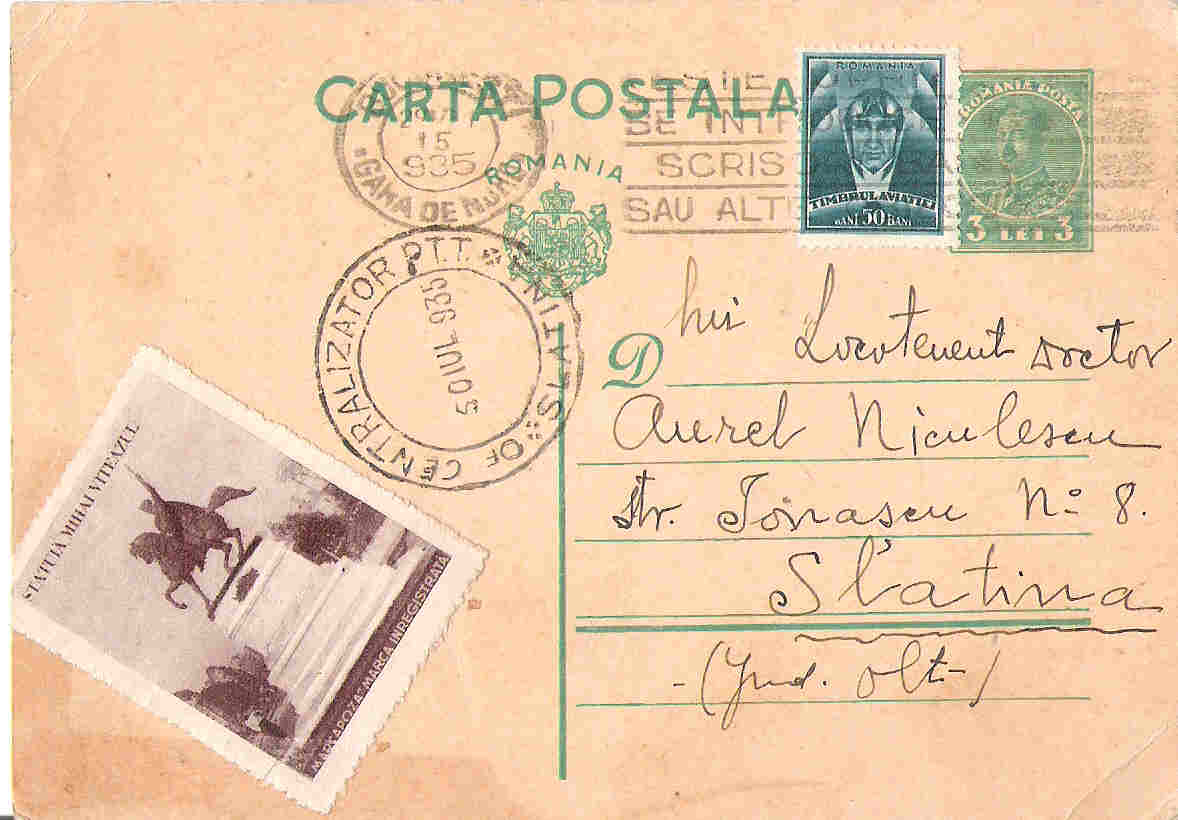 CARTA POSTALA
ROMANIA
ROMANIA
TIMBRUL AVIATIEI
BANI 50 BANI
ROMANIA POSTA
3 LEI 3
15
935
GARA DE NORD
SE
SCRIS
SAU ALTE
OF CENTRALIZATOR P.T.T. SLATINA
30 IUL 935
D lui Locotenent Doctor
Aurel Niculescu
Str. Ionascu No 8.
Slatina
-(Jud. Olt-)
STATUIA MIHAI VITEAZUL
MARCA INREGISTRATA